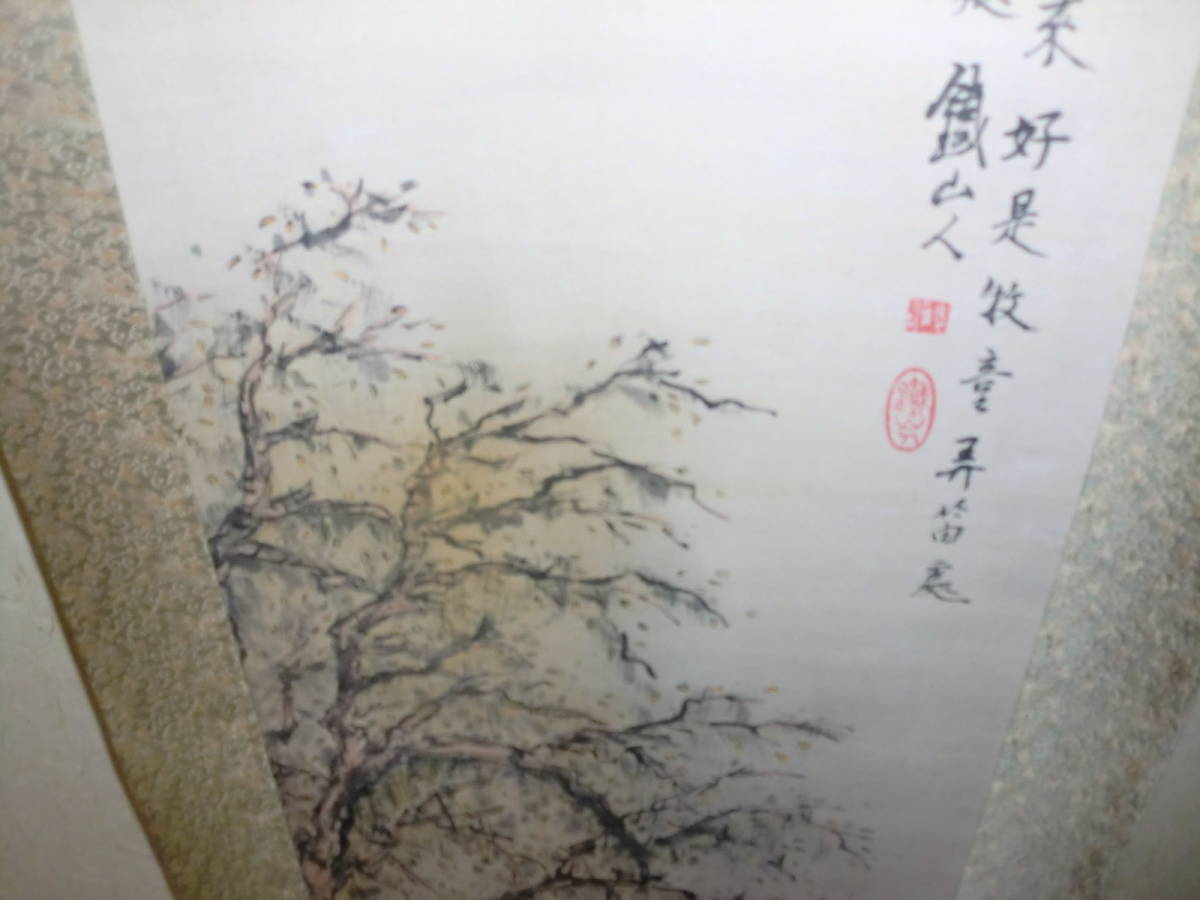 来好是牧童弄笛處
鐵山人